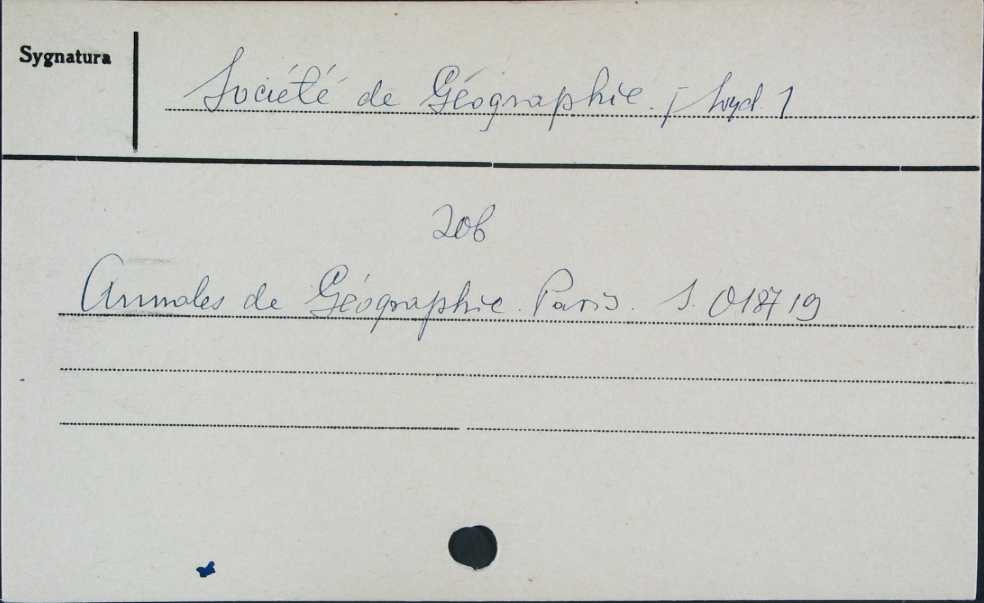 Sygnatura
Société de Géographie. [wyd. 1
Zob
Annales de Géographie. Paris. S. 018719